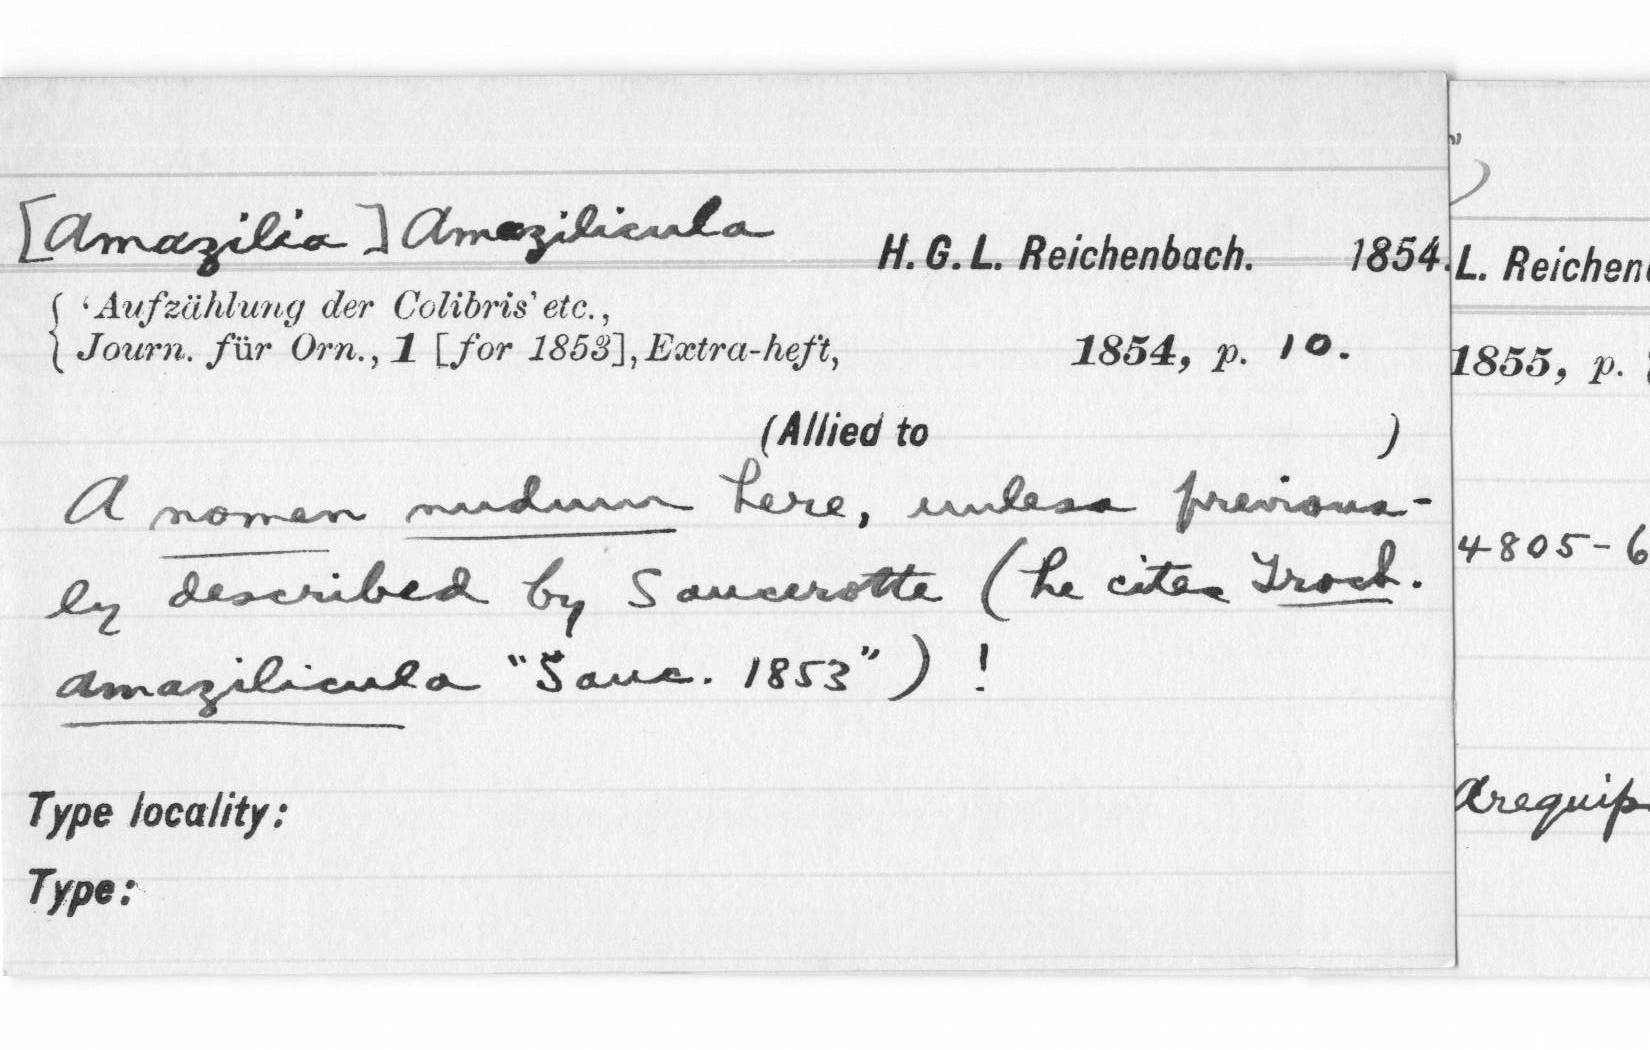 [Amazilia] Amazilicula H. G. L. Reichenbach. 1854.
'Aufzählung der Colibris' etc.,
Journ. für Orn., 1 [for 1853], Extra-heft, 1854, p. 10.
(Allied to )
A nomen nudum here, unless previous-
ly described by Saucerotte (he cites Troch.
amazilicula "Sauc. 1853") !
Type locality:
Type:
L. Reichen
1855, p.
4805-6
Arequip